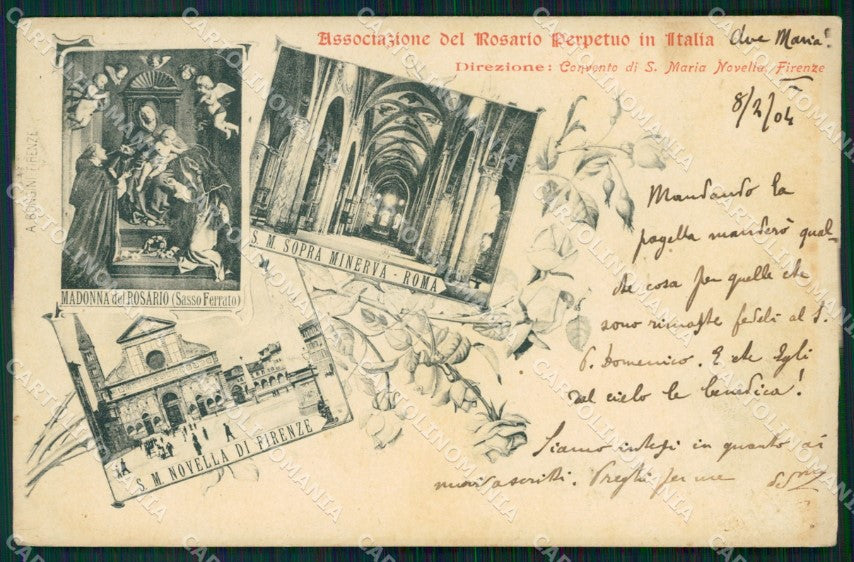 Associazione del Rosario Perpetuo in Italia
Ave Maria!
Direzione: Convento di S. Maria Novella Firenze
8/2/04
A. BONGINI FIRENZE
MADONNA del ROSARIO (Sasso Ferrato)
S. M. SOPRA MINERVA - ROMA
S. M. NOVELLA DI FIRENZE
Mandando la
pagella manderò qual-
che cosa per quelle che
sono rimaste fedeli al S.
P. Domenico. E che Egli
dal cielo le benedica!
Siamo intesi in quanto ai
nuovi ascritti. Preghi per me
CARTOLINOMANIA